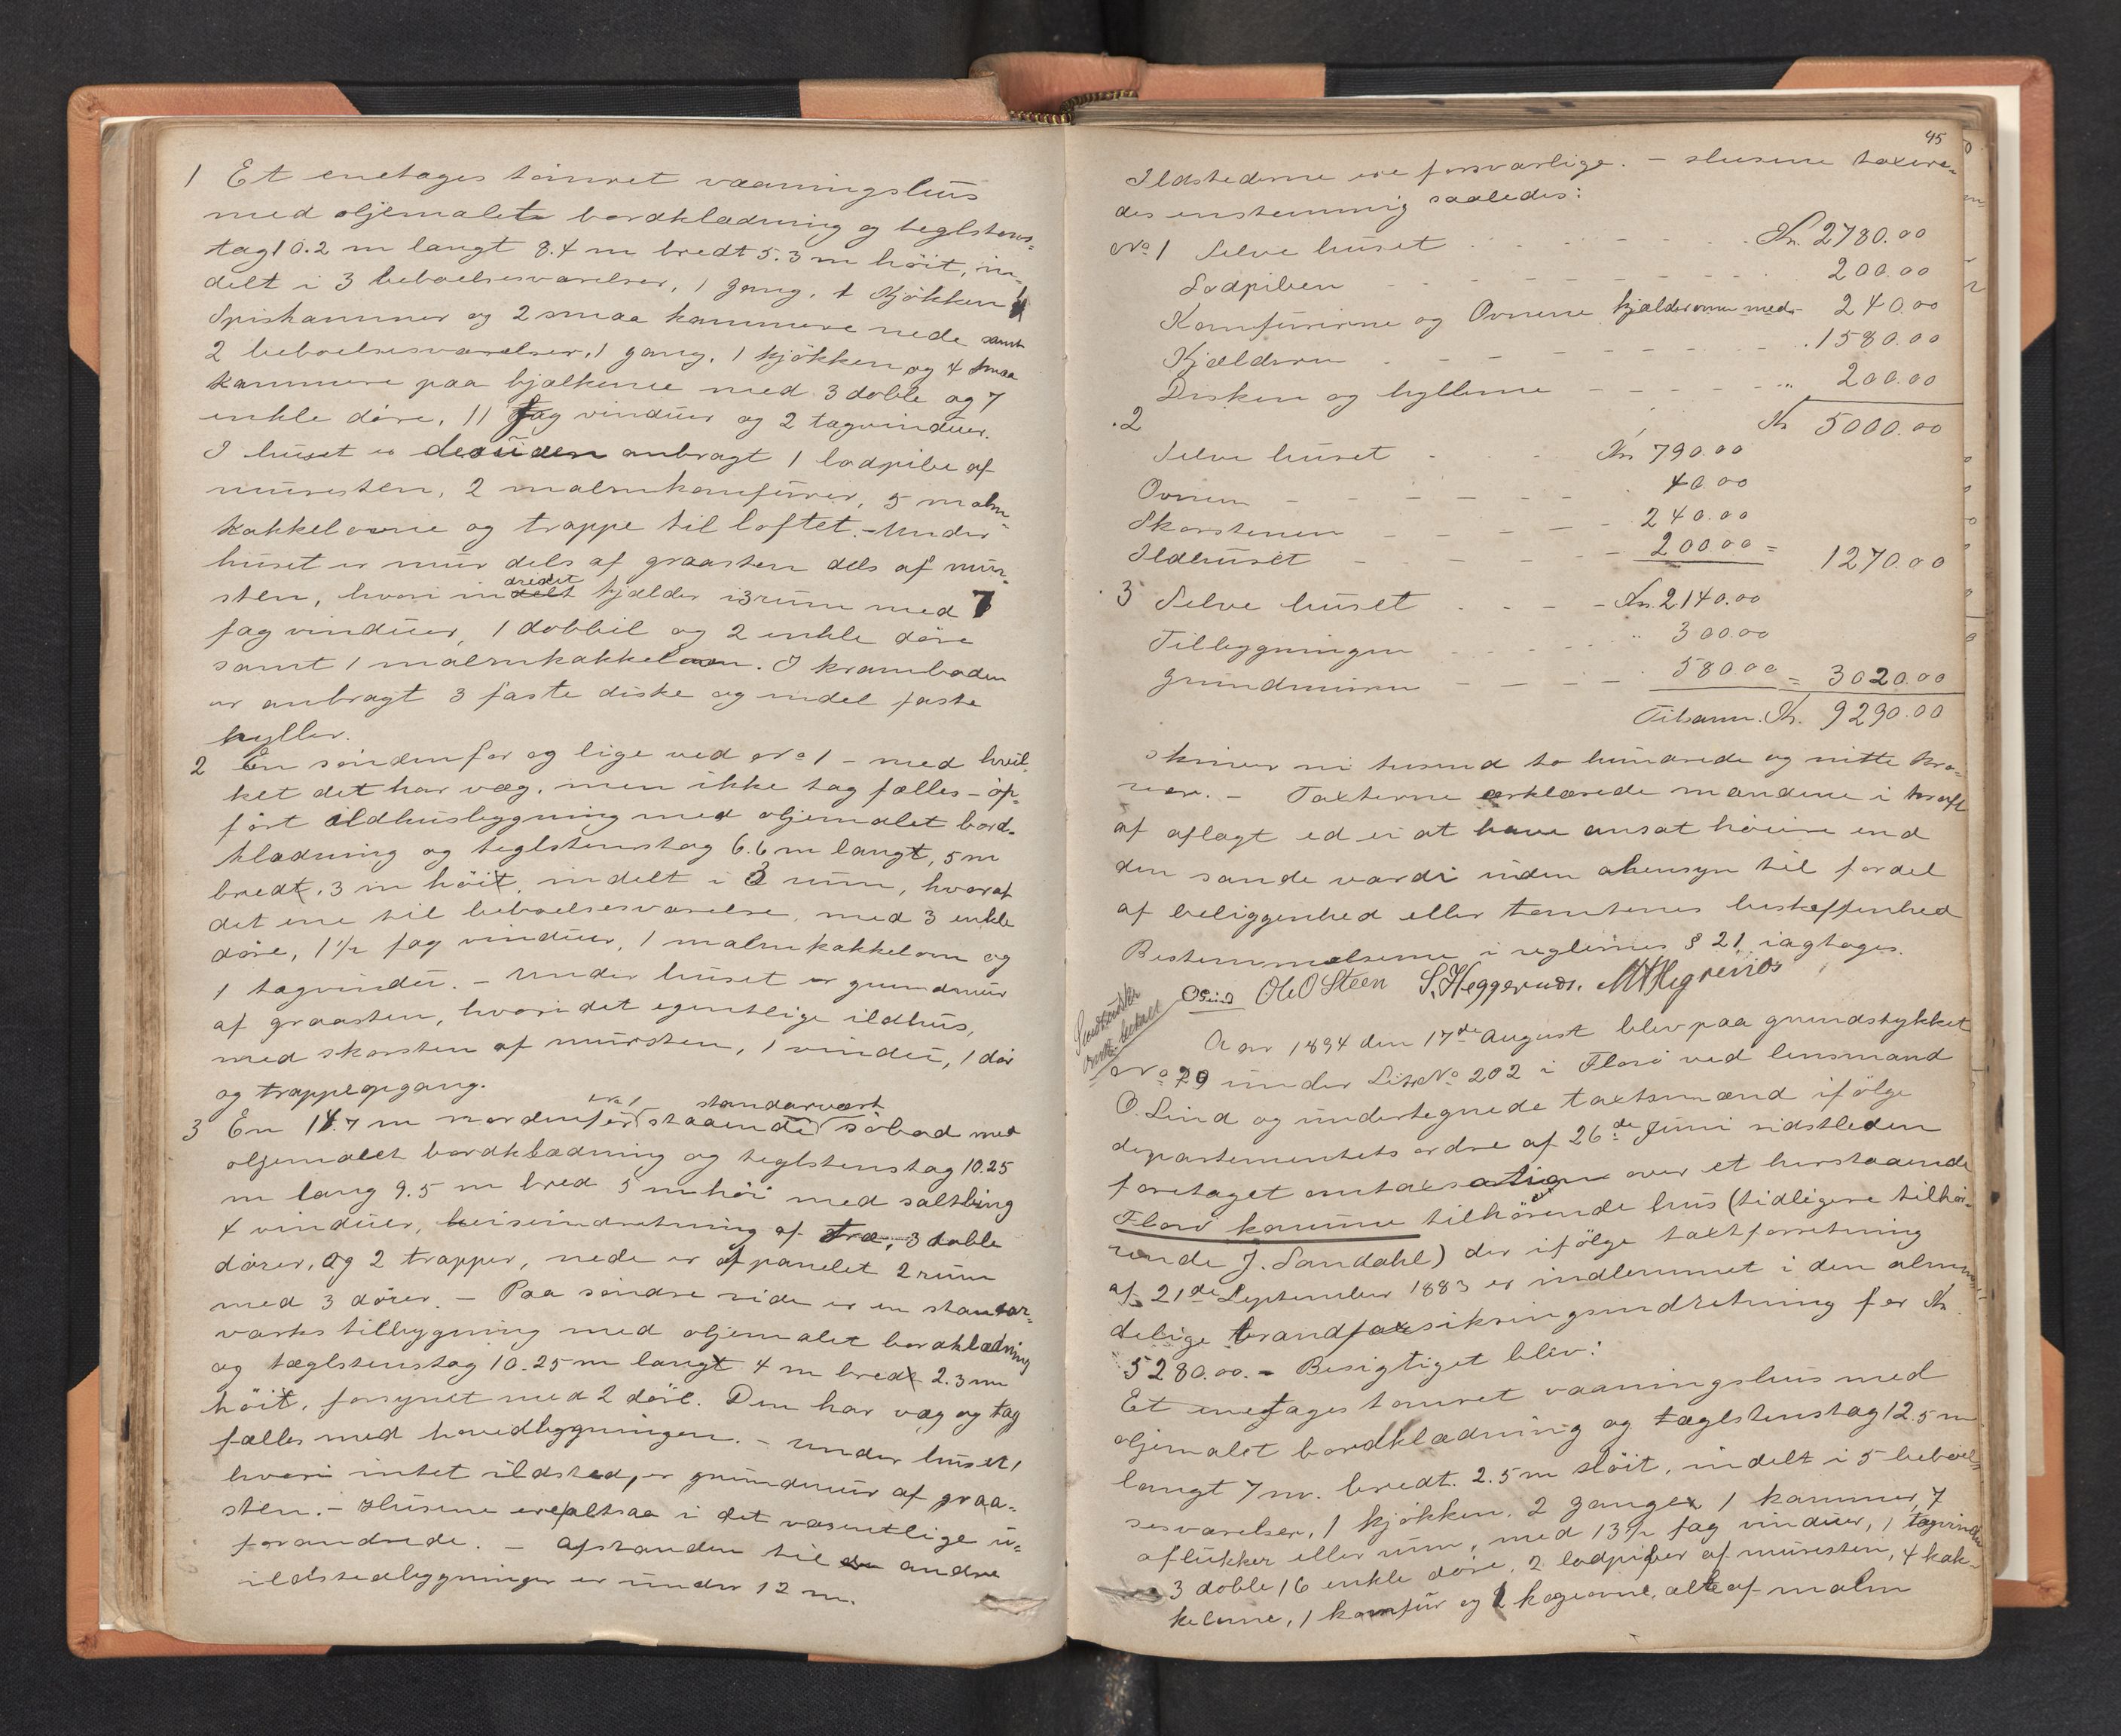 1 Et enetages tømret vaaningshus
med oljemalet bordklædning og teglstens-
tag 10.2 m langt 8.4 m bredt 5.3 m höit, in-
delt i 3 beboelsesværelser, 1 gang, 1 Kjökken
Spiskammer og 2 smaa kammere nede samt
2 beboelsesværelser, 1 gang, 1 kjökken og 4 smaa
kammere paa bjælkerne med 3 doble og 7
enkle döre, 11 fag vinduer og 2 tagvinduer.
I huset er desuden anbragt 1 lodpibe af
mursten, 2 malmkomfurer, 5 malm-
kakkelovne og trappe til loftet. - Under
huset er mur dels af graasten dels af mur-
sten, hvori indredet kjælder i 3 rum med 7
fag vinduer, 1 dobbel og 2 enkle döre
samt 1 malmkakkelovn. I kramboden
er anbragt 3 faste diske og endel faste
hyller.
2 En söndenfor og lige ved No 1 - med hvil-
ket det har væg, men ikke tag fælles - op-
fört ildhusbygning med oljemalet bord-
klædning og teglstenstag 6.6 m langt, 5 m
bredt, 3 m höit, indelt i 3 rum, hvoraf
det ene til beboelsesværelse, med 3 enkle
döre, 1½ fag vinduer, 1 malmkakkelovn og
1 tagvindu. - Under huset er grundmur
af graasten, hvori det egentlige ildhus,
med skorsten af mursten, 1 vindu, 1 dör
og trappeopgang.
3 En 14.7 m nordenfor No 1 staaende standarværk söbod med
oljemalet bordklædning og teglstenstag 10.25
m lang 9.5 m bred 5 m höi med saltbing
4 vinduer, heiseindretning af træ, 3 doble
dörer, og 2 trapper, nede er afpanelet 2 rum
med 3 dörer. - Paa söndre side er en standar-
værks tilbygning med oljemalet bordklædning
og tæglstenstag 10.25 m langt 4 m bredt 2.3 m
höit, forsynet med 2 döre. Den har væg og tag
fælles med hovedbygningen. - Under huset,
hvori intet ildsted, er grundmur af graa-
sten. - Husene ere altsaa i det væsentlige u-
forandrede. - Afstanden til andre
ildstedbygninger er under 12 m.
45
Ildstederne ere forsvarlige. - Husene taxere-
des enstemmig saaledes:
No 1 Selve huset Kr. 2780.00
Lodpiben 200.00
Komfurerne og Ovnene kjælderovnen med 240.00
Kjælderen 1580.00
Disken og hyllerne " 200.00
Kr 5000.00
2
Selve huset Kr 790.00
Ovnen 40.00
Skorstenen 240.00
Ildhuset 200.00 = 1270.00
3 Selve huset Kr. 2140.00
Tilbygningen " 300.00
Grundmuren 580.00 = 3020.00
Tilsamm. Kr. 9290.00
skriver ni tusend to hundrede og nitti kro-
ner. - Taxterne erklærede mændene i kraft
af aflagt ed ei at have ansat höiere end
den sande værdi uden ahensyn til fordel
af beliggenhed eller tomtenes beskaffenhed
Bestemmelserne i reglernes § 21 iagtages.
O Lind Ole O Steen S. Heggernæs. M Hegrenæs
Aar 1894 den 17de August blev paa grundstykket
No 29 under Litr No 202 i Florö ved lensmand
O. Lind og undertegnede taxtsmænd ifölge
departementets ordre af 26de Juni sidstleden
foretaget omtaxsation over et herstaaende
Florö komune tilhörende hus (tidligere tilhö-
rende J. Sandahl) der ifölge taxtforretning
af 21de September 1883 er indlemmet i den almin-
delige brandforsikringsindretning for Kr.
5280.00. - Besigtiget blev:
Et enetages tömret vaaningshus med
oljemalet bordklædning og tæglstenstag 12.5 m
langt 7 m. bredt. 2.5 m höit, indelt i 5 beboel-
sesværelser, 1 kjökken, 2 gange 1 kammer, 7
aflukker eller rum, med 13½ fag vinduer, 1 tagvindu
3 doble 16 enkle döre, 2 lodpiber af mursten, 4 kak-
kelovne, 1 komfur og 1 kogeovne, alle af malm